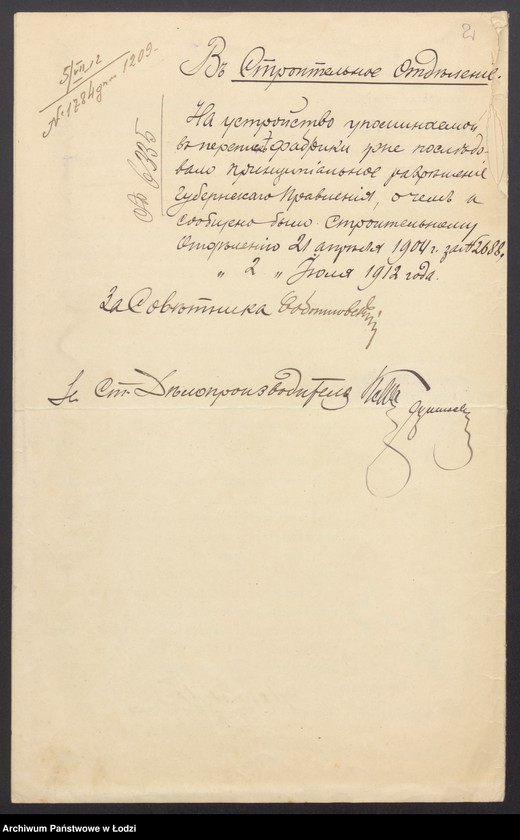 2
5/VII 12
№ 1784 1209
Въ Строительное Отдѣленіе.
№ 6335
На устройство упоминаемой
въ перепискѣ фабрики уже послѣдо-
вало принципіальное разрѣшеніе
Губернскаго Правленія, о чемъ и
сообщено было Строительному
Отдѣленію 21 апрѣля 1904 г. за № 2688.
„ 2 „ Іюля 1912 года.
За Совѣтника
Ст. Дѣлопроизводителя
Archiwum Państwowe w Łodzi